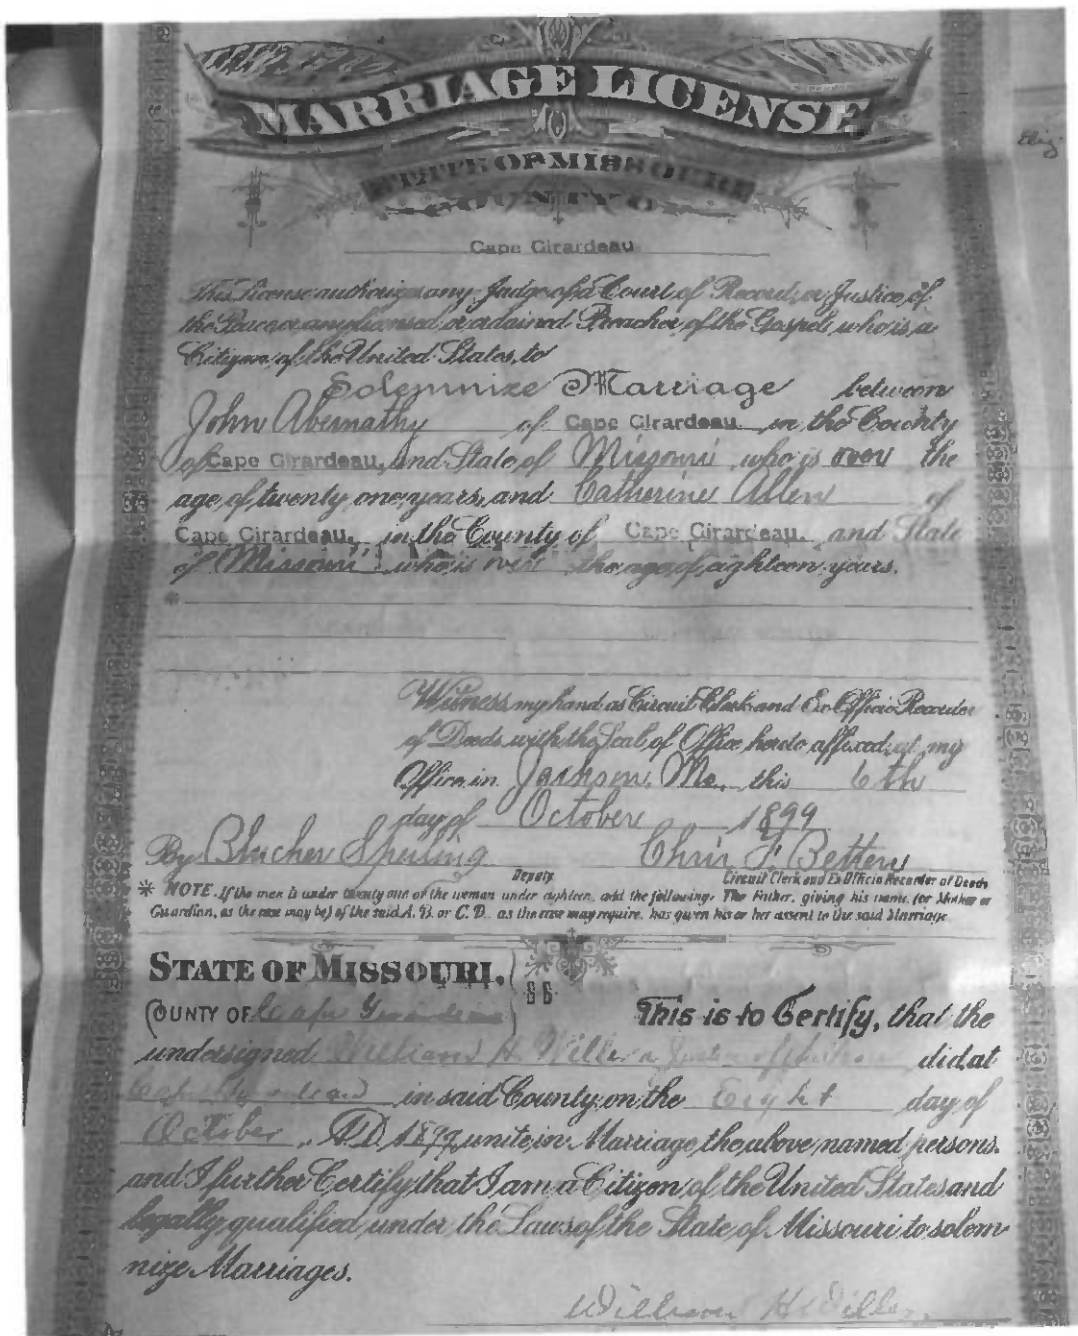 MARRIAGE LICENSE
STATE OF MISSOURI
COUNTY O
Cape Girardeau
Eliz
This License authorizes any Judge of a Court of Record, or Justice of
the Peace or any licensed or ordained Preacher of the Gospel, who is a
Citizen of the United States, to
Solemnize Marriage between
John Abernathy of Cape Girardeau in the County
of Cape Girardeau, and State of Missouri who is over the
age of twenty one years, and Catherine Allen of
Cape Girardeau, in the County of Cape Girardeau, and State
of Missouri who is over the age of eighteen years.
*
Witness my hand as Circuit Clerk and Ex Officio Recorder
of Deeds with the Seal of Office hereto affixed, at my
Office in Jackson, Mo., this 6th
day of October 1899
By Blucher Sperling Chris F. Betten
Deputy. Circuit Clerk and Ex Officio Recorder of Deeds
* NOTE. If the man is under twenty one of the woman under eighteen, add the following: The Father, giving his name, (or Mother or
Guardian, as the case may be) of the said A. B. or C. D. as the case may require, has given his or her assent to the said Marriage
STATE OF MISSOURI,
COUNTY OF Cape Girardeau ss This is to Certify, that the
undersigned William H Willer a Justice of did, at
Cape Girardeau in said County on the Eight day of
October, A.D. 1899 unite in Marriage the above named persons.
and I further Certify that I am a Citizen of the United States and
legally qualified under the Laws of the State of Missouri to solem-
nize Marriages.
William H Willer.